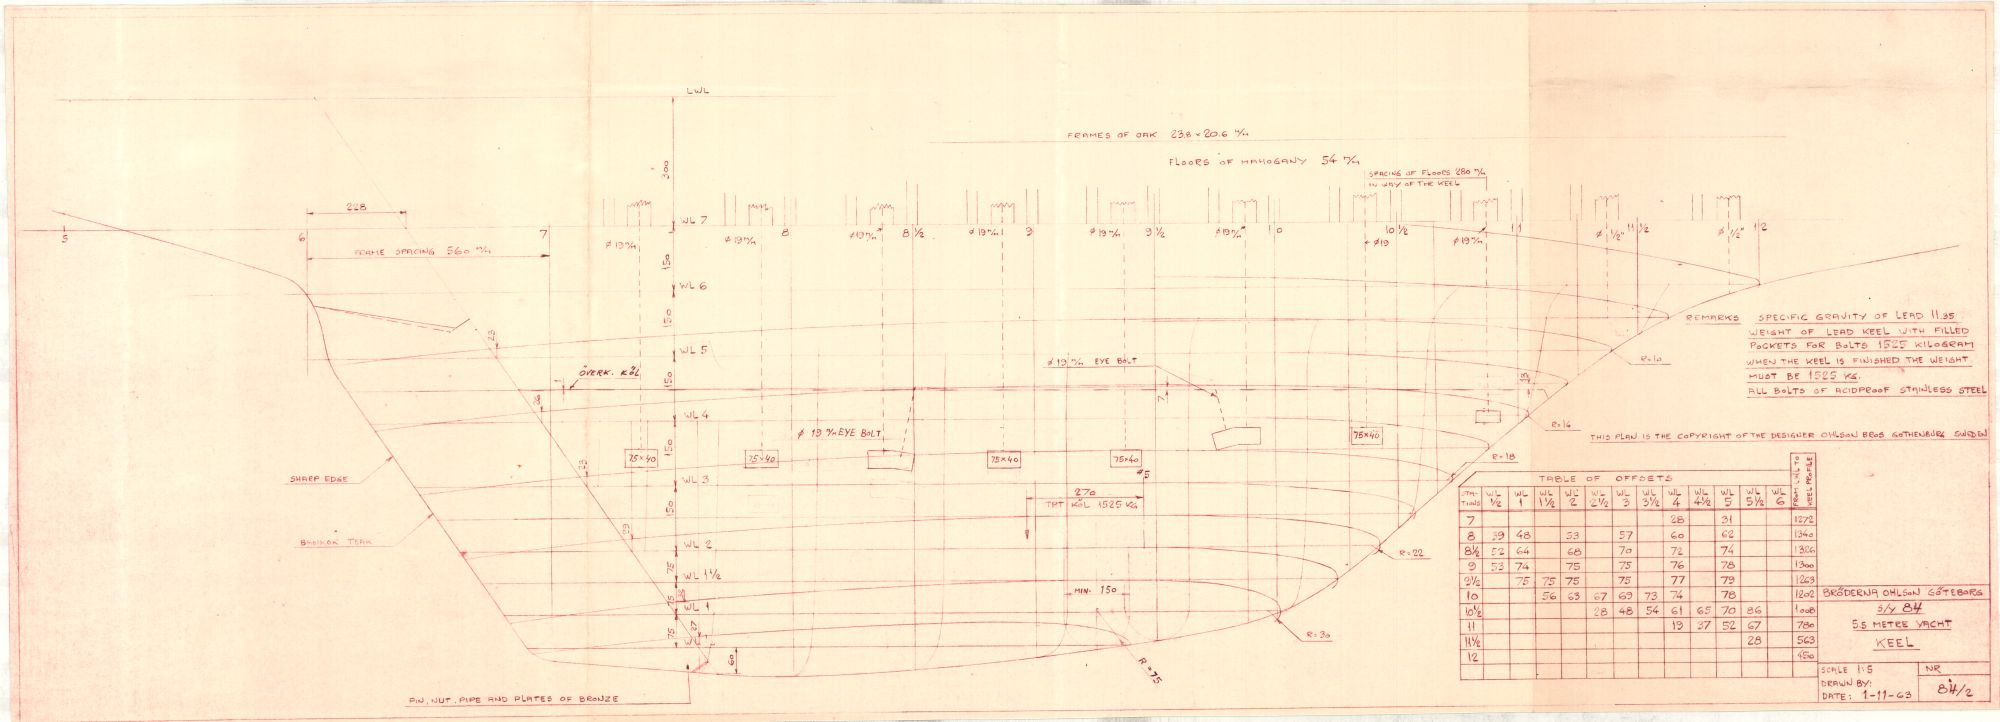 LWL
FRAMES OF OAK 23.8 × 20.6 m/m
FLOORS OF MAHOGANY 54 m/m
SPACING OF FLOORS 280 m/m
IN WAY OF THE KEEL
300
228
WL 7
5
6
7
8
8 ½
9
9 ½
10
10 ½
11
11 ½
12
FRAME SPACING 560 m/m
ø 19 m/m
ø 19 m/m
ø 19 m/m
ø 19 m/m
ø 19 m/m
ø 19 m/m
ø 19
ø 19 m/m
ø ½"
ø ½"
150
WL 6
150
23
WL 5
ÖVERK. KÖL
150
26
ø 19 m/m EYE BOLT
7
13
R=10
WL 4
ø 19 m/m EYE BOLT
R=16
150
75×40
75×40
75×40
75×40
75×40
23
R=18
WL 3
SHARP EDGE
270
TPT KÖL 1525 KG
150
29
BANGKOK TEAK
WL 2
R=22
75
WL 1½
MIN. 150
75
WL 1
27
75
R=30
60
R=75
PIN, NUT, PIPE AND PLATES OF BRONZE
REMARKS SPECIFIC GRAVITY OF LEAD 11.35
WEIGHT OF LEAD KEEL WITH FILLED
POCKETS FOR BOLTS 1525 KILOGRAM
WHEN THE KEEL IS FINISHED THE WEIGHT
MUST BE 1525 KG.
ALL BOLTS OF ACIDPROOF STAINLESS STEEL
THIS PLAN IS THE COPYRIGHT OF THE DESIGNER OHLSON BROS GOTHENBURG SWEDEN
TABLE OF OFFSETS
STATIONS WL ½ WL 1 WL 1½ WL 2 WL 2½ WL 3 WL 3½ WL 4 WL 4½ WL 5 WL 5½ WL 6 FROM LWL TO KEEL PROFILE
7 28 31 1272
8 39 48 53 57 60 62 1340
8½ 52 64 68 70 72 74 1326
9 53 74 75 75 76 78 1300
9½ 75 75 75 75 77 79 1263
10 56 63 67 69 73 74 78 1202
10½ 28 48 54 61 65 70 86 1008
11 19 37 52 67 780
11½ 28 563
12 450
BRÖDERNA OHLSON GÖTEBORG
S/Y 84
5.5 METRE YACHT
KEEL
SCALE 1:5
NR
DRAWN BY:
DATE: 1-11-63
84/2